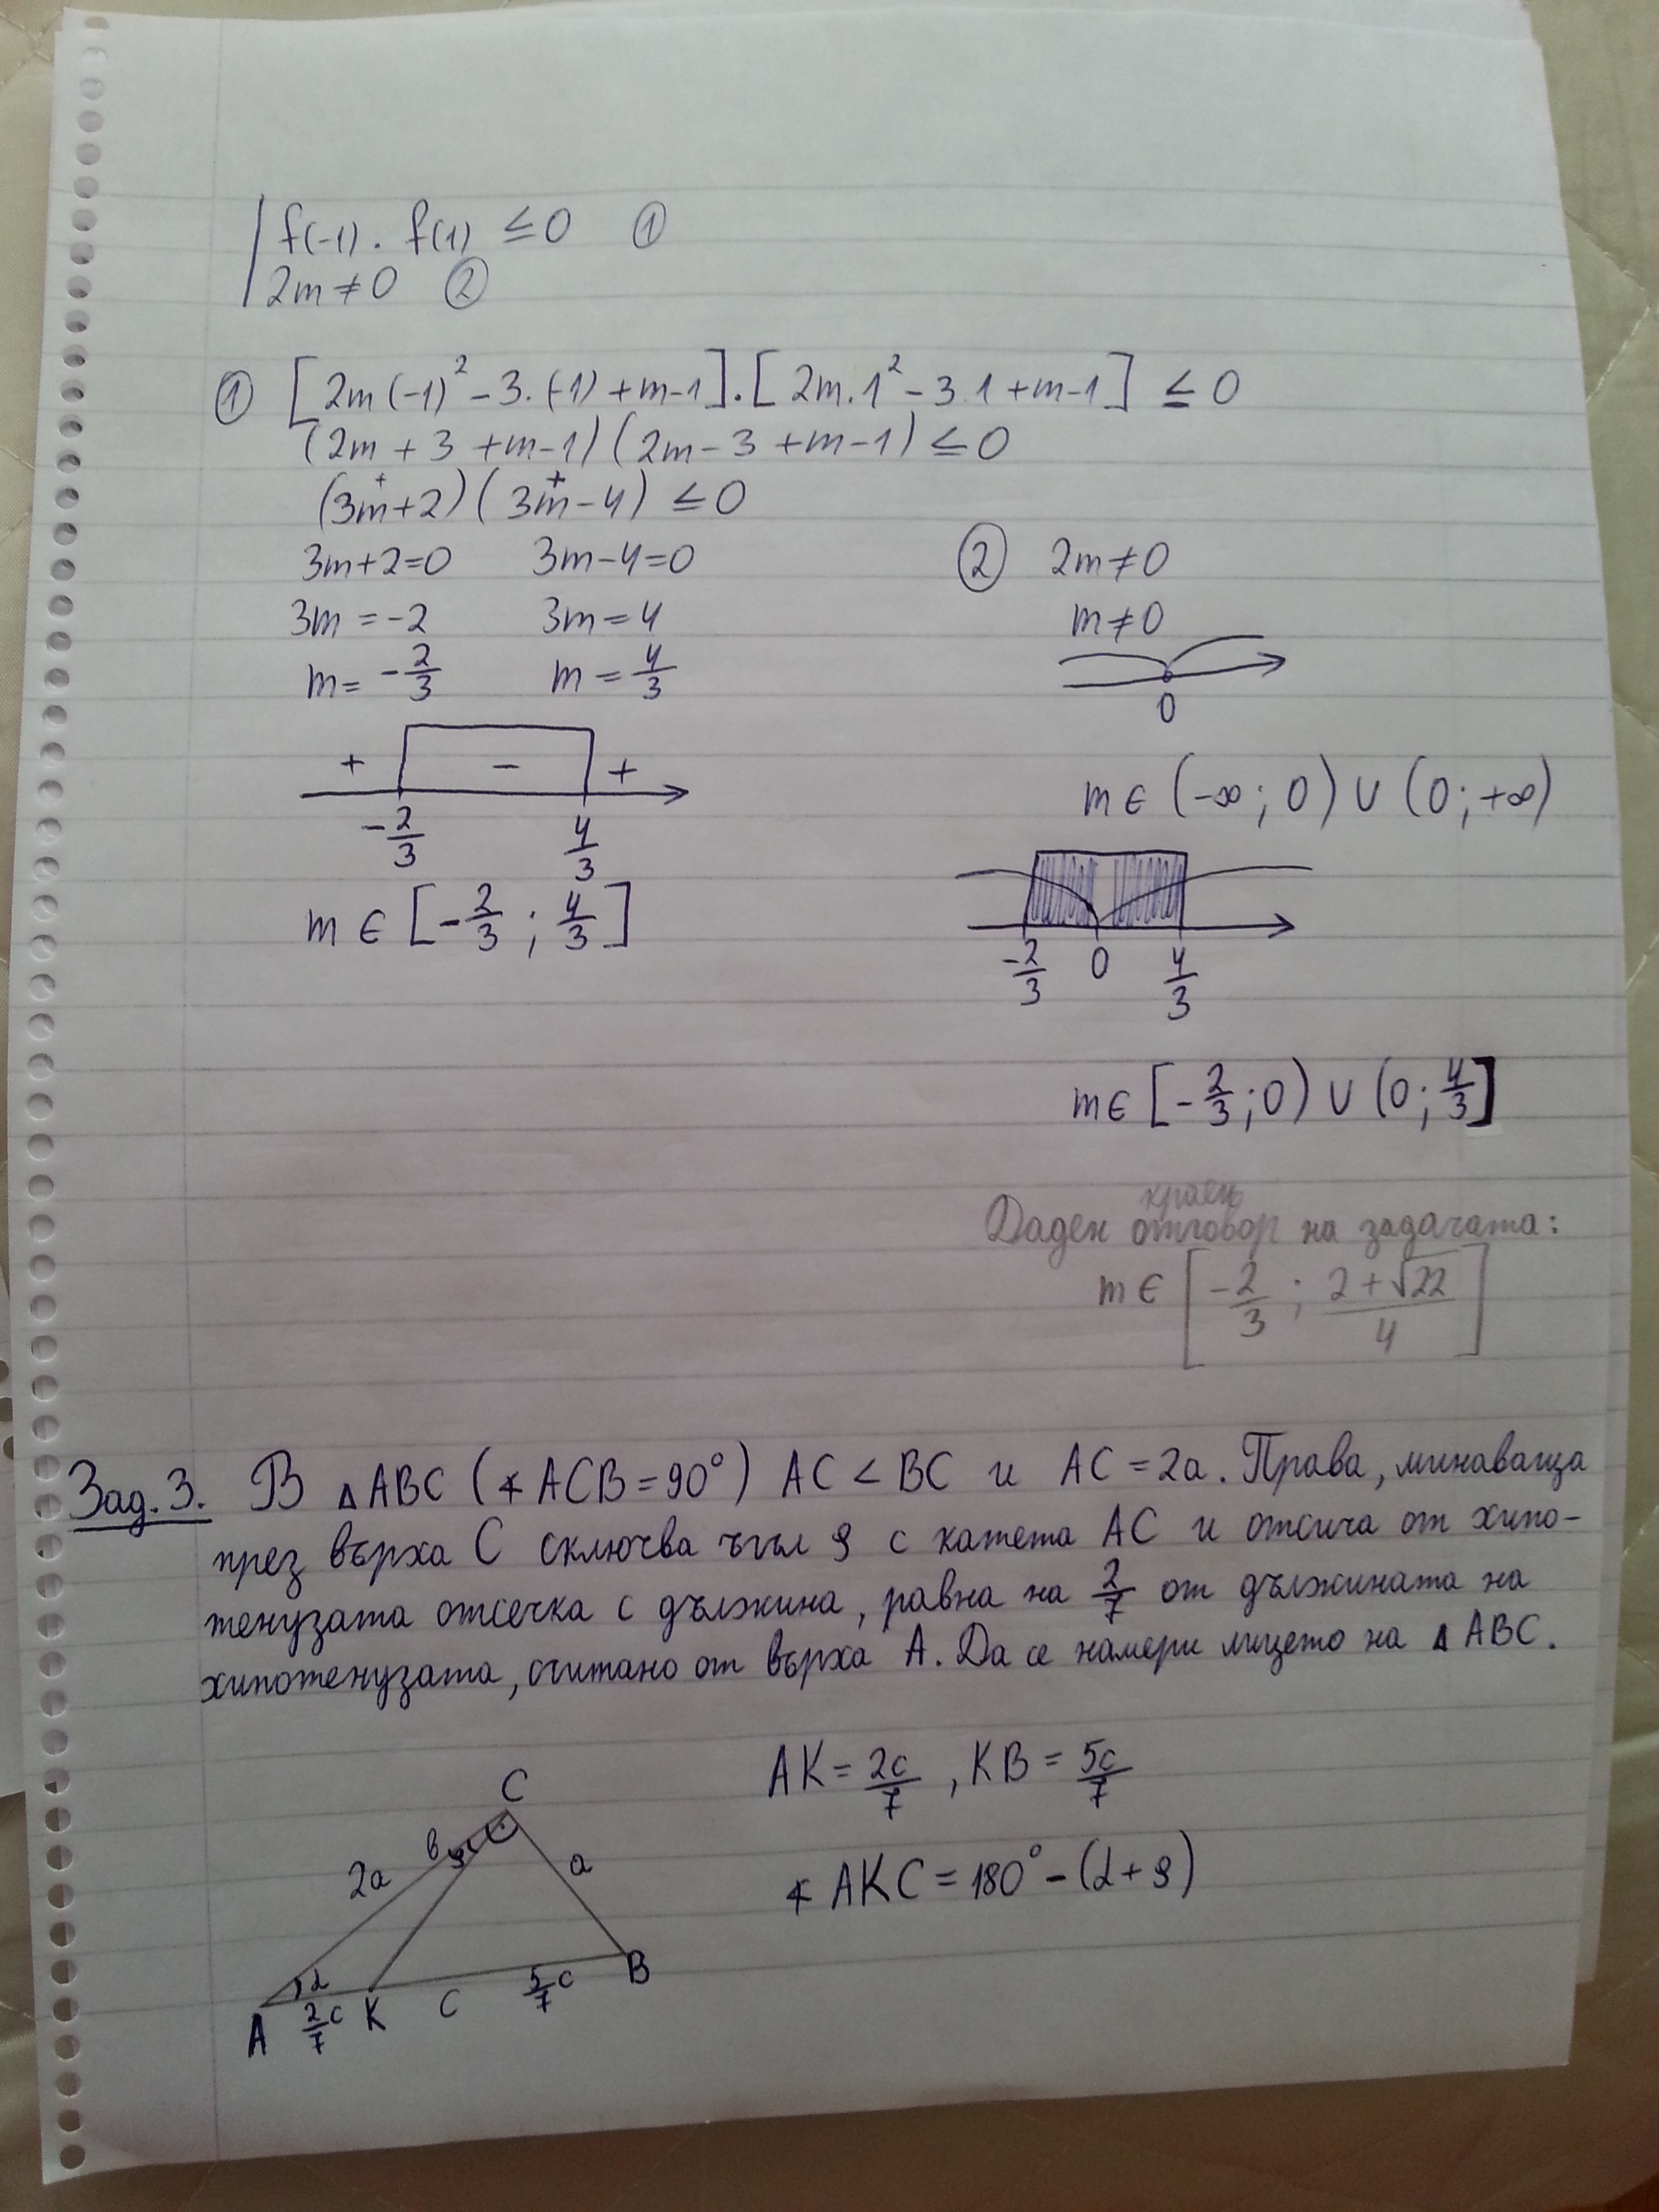 f(-1) . f(1) ≤ 0 ①
2m ≠ 0 ②
① [2m(-1)² - 3.(-1) + m-1].[2m.1² - 3.1 + m-1] ≤ 0
(2m + 3 + m-1)(2m - 3 + m-1) ≤ 0
+ +
(3m+2)(3m-4) ≤ 0
3m+2=0 3m-4=0
3m = -2 3m = 4
m = -2/3 m = 4/3
+ - +
-2/3 4/3
m ∈ [-2/3 ; 4/3]
② 2m ≠ 0
m ≠ 0
0
m ∈ (-∞ ; 0) ∪ (0 ; +∞)
-2/3 0 4/3
m ∈ [-2/3 ; 0) ∪ (0 ; 4/3]
краен
Даден отговор на задачата:
m ∈ [-2/3 ; (2+√22)/4]
Зад. 3. В △ABC (∢ACB = 90°) AC < BC и AC = 2a. Права, минаваща
през върха C сключва ъгъл φ с катета AC и отсича от хипо-
тенузата отсечка с дължина, равна на 2/7 от дължината на
хипотенузата, считано от върха A. Да се намери лицето на △ABC.
AK = 2c/7 , KB = 5c/7
∢AKC = 180° - (α + φ)
C
2a в φ a
α
A 2/7 c K c 5/7 c B